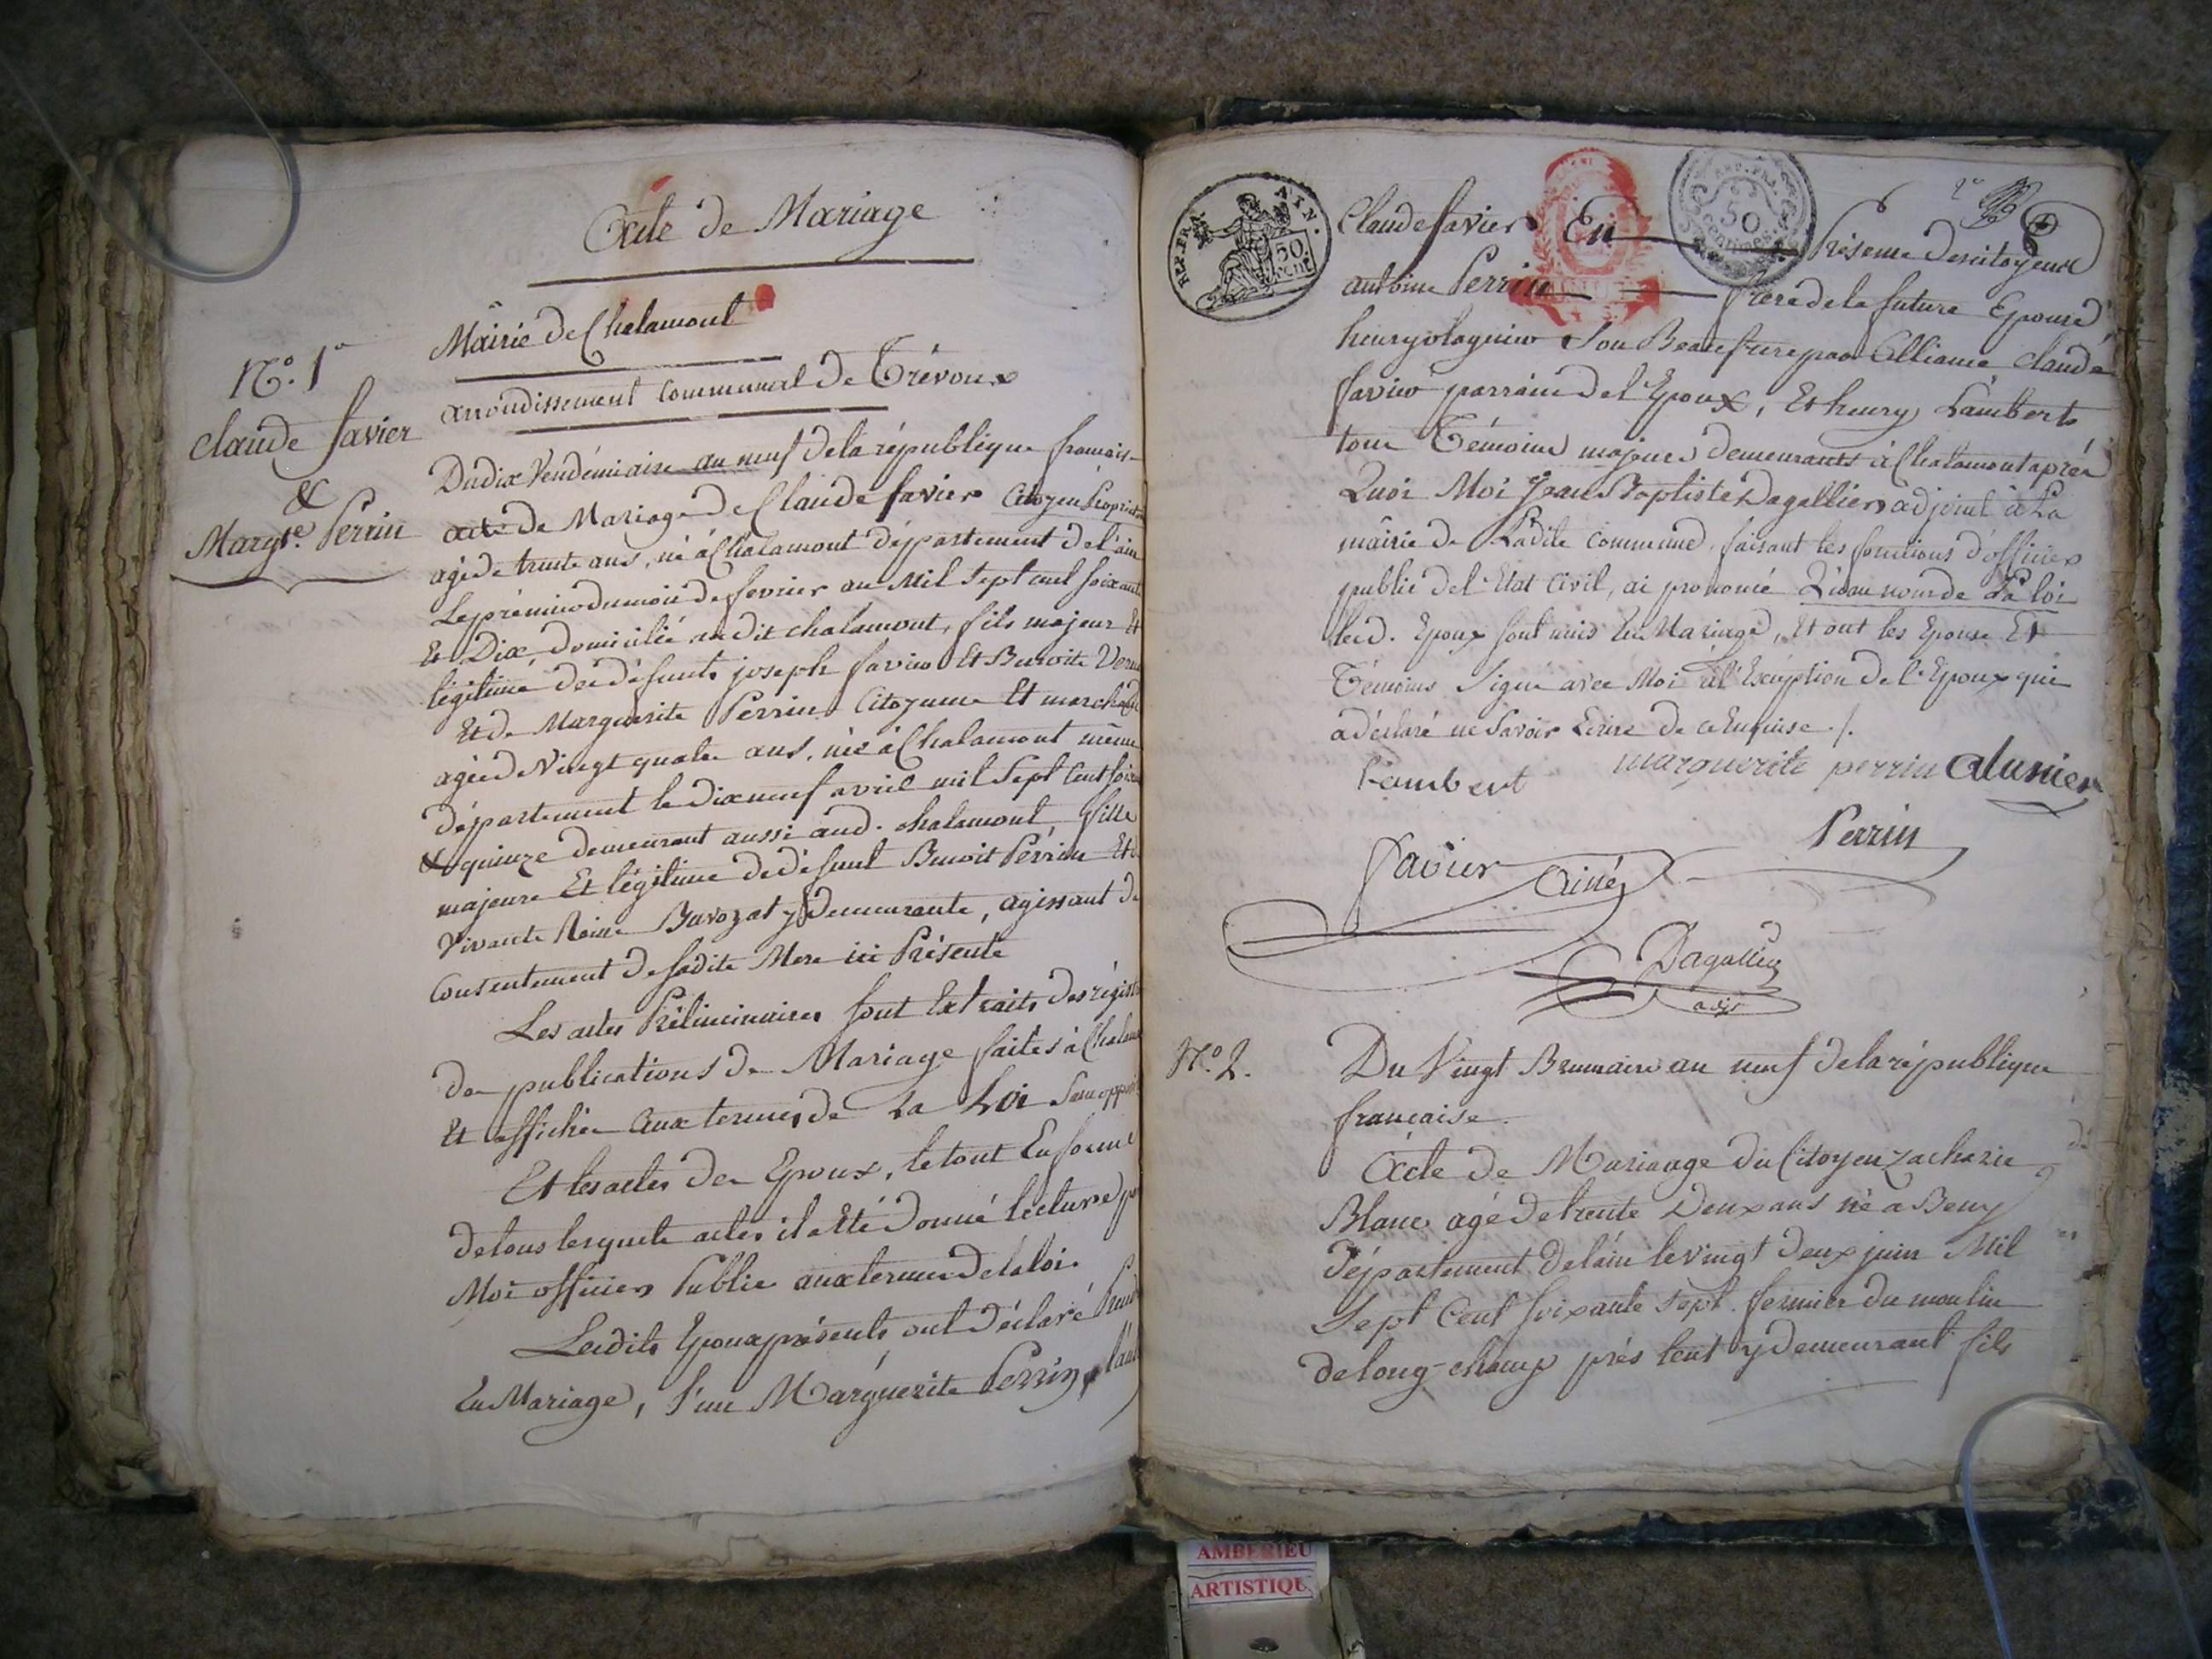 Acte de Mariage
Mairie de Chalamont
arrondissement Communal de Trévoux
N.º 1er
Claude favier
&
Margte. Perrin
Du dix Vendémiaire an neuf de la république francais
acte de Mariage de Claude favier Citoyen Propriet
agé de trente ans, né à Chalamont département de l'ain
Le prémier du mois de fevrier an Mil Sept cent soixante
Et Dix, domicilié audit chalamont, fils majeur Et
légitime des défunts joseph favier Et Benoite
Et de Marguerite Perrin Citoyenne Et marchande
agée de Vingt quatre ans, née à Chalamont même
département le dix neuf avril mil Sept Cent soix
& quinze demeurant aussi aud. chalamont fille
majeure Et légitime de défunt Benoit Perrin Et
Vivante Reine Buvozat y Demeurante, agissant de
Consentement de sadite Mere ici Présente
Les actes Préliminaires sont Extraits des régist
de publications de Mariage faites à Chalam
Et affichée aux termes de La Loi Sans oppo
Et les actes des Epoux, le tout En forme
de tous lesquels actes il a Eté Donné lecture p
Moi officier Public aux termes de la loi.
Lesdits Epoux présents ont Déclaré Prend
En Mariage, l'un Marguerite Perrin, l'aut
REP. FRA. AIN. 50. cent
REP. FRA. 50 centimes
Claude favier En Présence des citoyens
antoine Perrin frere de la future Epouse
henry son Beaufrere par Alliance claude
favier parrain de l'Epoux, Et henry Lambert
tous Témoins majeurs demeurants à Chalamont après
Quoi Moi Jean Baptiste Dagallier adjoint à La
mairie de Ladite Commune, faisant les fonctions d'officier
public de l'Etat Civil, ai prononcé Qu'au nom de La loi
lesd. Epoux sont unis En Mariage, Et ont les Epouse Et
Témoins Signé avec Moi à l'Exception de l'Epoux qui
a déclaré ne Savoir Ecrire de ce Enquise ./.
Lambert marguerite perrin
Perrin
favier Ainé
Dagallier
adjt
N.º 2. Du Vingt Brumaire an neuf de la république
française.
Acte de Mariage du Citoyen Zacharie
Blanc agé de trente Deux ans né a Beny
Département de l'ain le vingt deux juin Mil
Sept Cent soixante Sept. fermier du moulin
de long-champ près lent y demeurant fils
AMBERIEU
ARTISTIQU